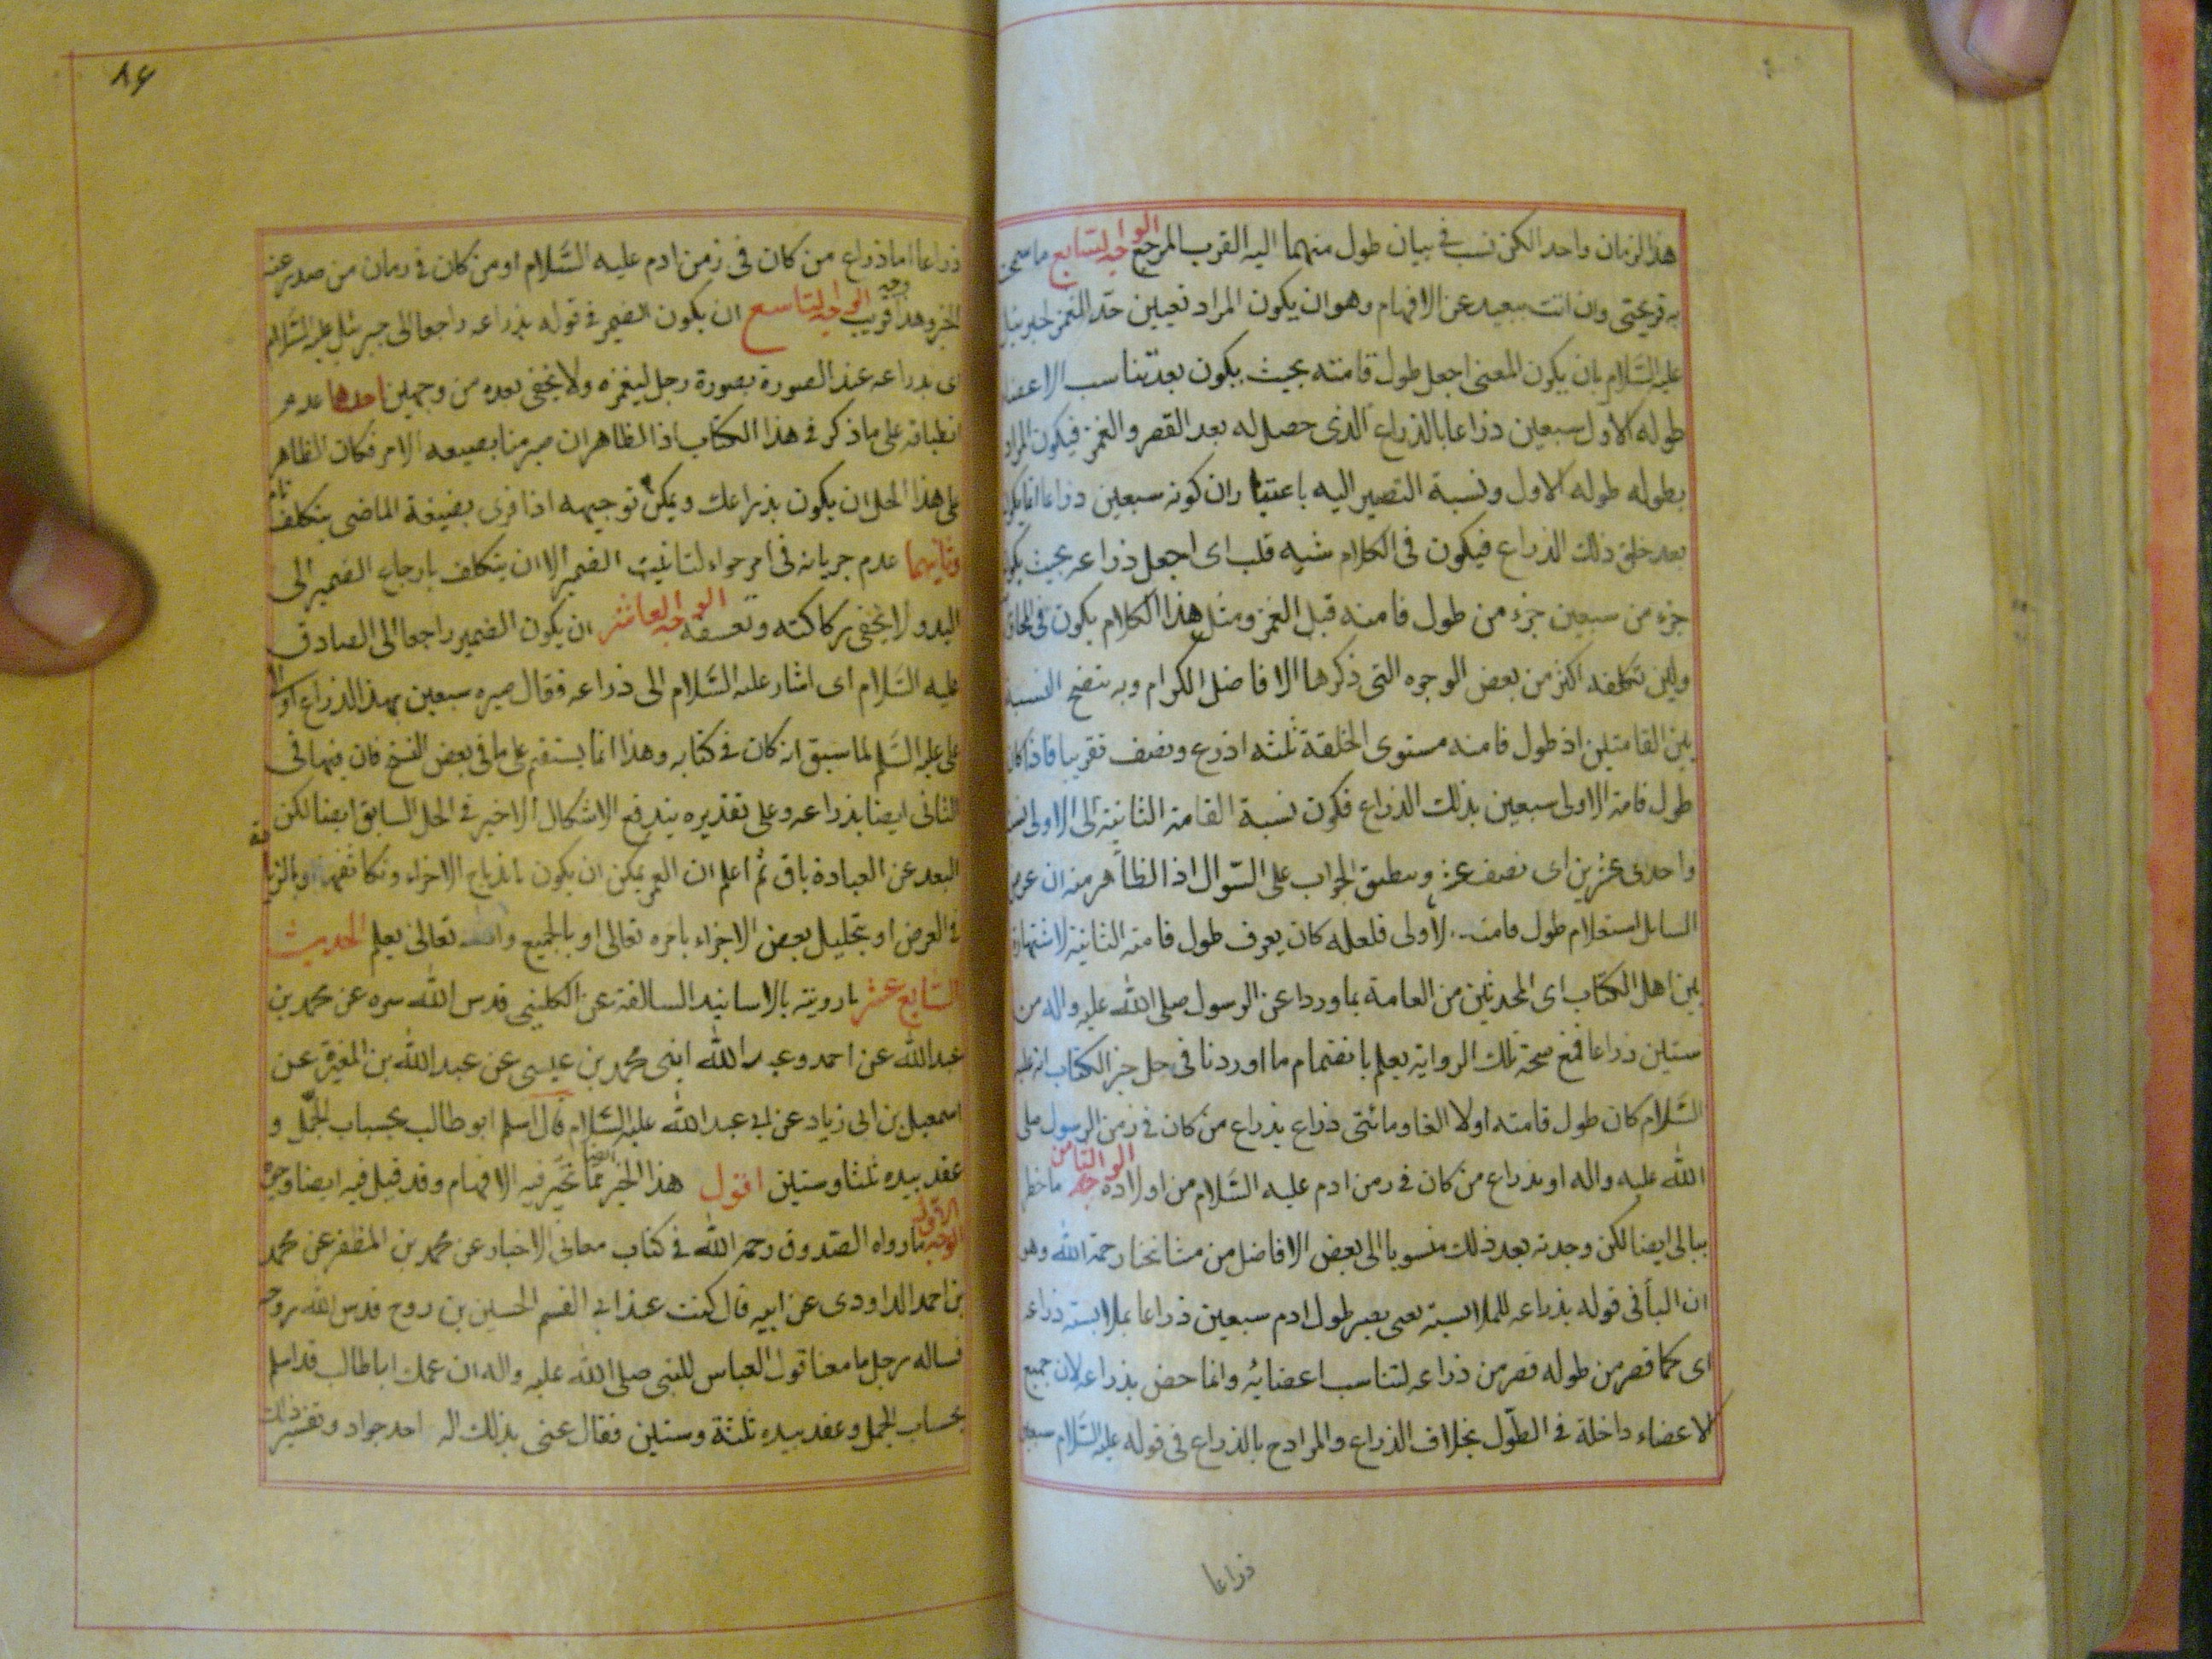 هذا الزمان واحد الكن نسب فى بيان طول منهما اليه القرب المرجع الوجه السابع ما سمح
به قريحتى وان انت ببعيد عن الافهام وهو ان يكون المراد تعيين حدّ الغمز لجبرئيل
عليه السّلام بان يكون المعنى اجعل طول قامته بحيث يكون بعد تناسب الاعضا
طوله الاول سبعين ذراعا بالذراع الذى حصل له بعد القصر والغمز فيكون المراد
بطوله طوله الاول ونسبة التصيير اليه باعتبار ان كونه سبعين ذراعا انما يكون
بعد خلق ذلك الذراع فيكون فى الكلام شبه قلب اى اجعل ذراعه بحيث يكون
جزء من سبعين جزء من طول قامته قبل الغمز ومثل هذا الكلام يكون فى
وليس تكلفه اكثر من بعض الوجوه التى ذكرها الافاضل الكرام وبه يتضح النسبة
بين القامتين اذ طول قامته مستوى الخلقة ثلثه اذرع ونصف تقريبا فاذا كان
طول قامته الاولى سبعين بذلك الذراع فكون نسبة القامة الثانية الى الاولى
واحدى عشرين اى نصف عشر وينطبق الجواب على السّوال اذ الظاهر منه ان غرض
السايل استعلام طول قامته الاولى فلعله كان يعرف طول قامته الثانية لاشتهاره
بين اهل الكتاب اى المحدثين من العامة بما وردا عن الرسول صلى الله عليه واله من
ستين ذراعا فمع صحة تلك الرواية يعلم بانضمام ما اوردنا فى حل خبر الكتاب انه عليه
السّلام كان طول قامته اولا الفا ومائتى ذراع بذراع من كان فى زمن الرسول صلى
الله عليه واله او بذراع من كان فى زمن ادم عليه السّلام من اولاده الوجه الثامن ما خطر
ببالى ايضا لكن وجدته بعد ذلك منسوبا الى بعض الافاضل من مشايخنا رحمة الله وهو
ان البأ فى قوله بذراعه للملابسة يعنى يصير طول ادم سبعين ذراعا بملابسته ذراعه
اى كما قصر من طوله قصر من ذراعه لتناسب اعضائه وانما خص بذراعه لان جميع
الاعضاء داخلة فى الطّول بخلاف الذراع والمراد ح بالذراع فى قوله عليه السّلام سبعين
ذراعا
٨٤
ذراعا اما ذراع من كان فى زمن ادم عليه السّلام او من كان فى زمان من صدر عنه
الخبر وهذا وجه قريب الوجه التاسع ان يكون الضمير فى قوله بذراعه راجعا الى جبرئيل عليه السّلام
اى بذراعه عند الصورة بصورة رجل ليغمزه ولا يخفى بعده من وجهين احدها عدم
انطباقه على ما ذكر فى هذا الكتاب اذ الظاهر ان صيرهنا بصيغه الامر فكان الظاهر
على هذا الحل ان يكون بذراعك ويمكن توجيهه اذا قرى بصيغة الماضى بتكلف تام
وثانيهما عدم جريانه فى امر حواء لتانيث الضمير الا ان يتكلف بارجاع الضمير الى
اليد ولا يخفى ركاكته وتعسفه الوجه العاشر ان يكون الضمير راجعا الى الصادق
عليه السّلام اى اشار عليه السّلام الى ذراعه فقال صيره سبعين بهذا الذراع او الى
على عليه السّلم لما سبق انه كان فى كتابه وهذا انما يستقيم على ما فى بعض النسخ فان فيها فى
الثانى ايضا بذراعه وعلى تقديره يندفع الاشكال الاخير فى الحل السابق ايضا لكن
البعد عن العبادة باق ثم اعلم ان الغمز يمكن ان يكون باندماج الاجزاء وتكاثفها او بالزيادة
فى العرض او بتحليل بعض الاجزاء بامره تعالى او بالجميع والله تعالى يعلم الحديث
السابع عشر ما رويته بالاسانيد السالفة عن الكلينى قدس الله سره عن محمد بن
عبد الله عن احمد وعبد الله ابنى محمد بن عيسى عن عبد الله بن المغيرة عن
اسمعيل بن ابى زياد عن ابى عبد الله عليه السّلام قال اسلم ابو طالب بحساب الجمّل و
عقد بيده ثلثا وستين اقول هذا الخبر مما تحير فيه الافهام وقد قيل فيه ايضا وجوه
الوجه الاول ما رواه الصّدوق رحمه الله فى كتاب معانى الاخبار عن محمد بن المظفر عن محمد
بن احمد الداودى عن ابيه قال كنت عند ابى القسم الحسين بن روح قدس الله روحه
فساله رجل ما معنا قول العباس للنبى صلى الله عليه واله ان عمك ابا طالب قد اسلم
بحساب الجمل وعقد بيده ثلثة وستين فقال عنى بذلك اله احد جواد وتفسير ذلك